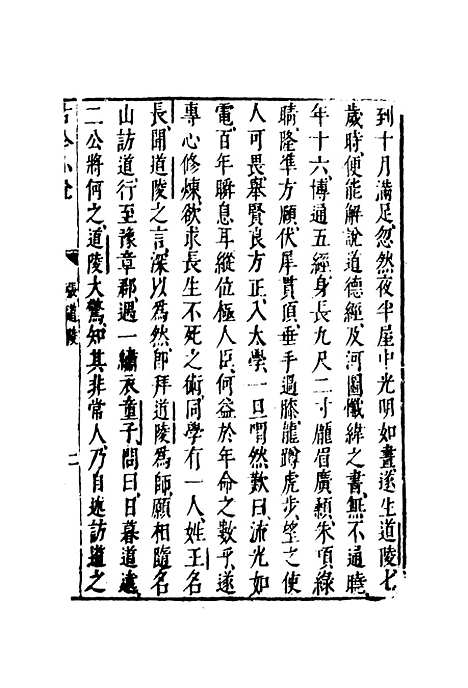 到十月滿足忽然夜半屋中光明如晝遂生道陵七
歲時便能解說道德經及河圖懺緯之書無不通曉
年十六博通五經身長九尺二寸龐眉廣顙朱項綠
睛隆準方頤伏犀貫頂垂手過膝龍蹲虎步望之使
人可畏舉賢良方正入太學一旦喟然歎曰流光如
電百年瞬息耳縱位極人臣何益於年命之數乎遂
專心修煉欲求長生不死之術同學有一人姓王名
長聞道陵之言深以為然即拜道陵為師願相隨名
山訪道行至豫章郡遇一繡衣童子問曰日暮道遠
二公將何之道陵大驚知其非常人乃自述訪道之
古今小說
張道陵
二